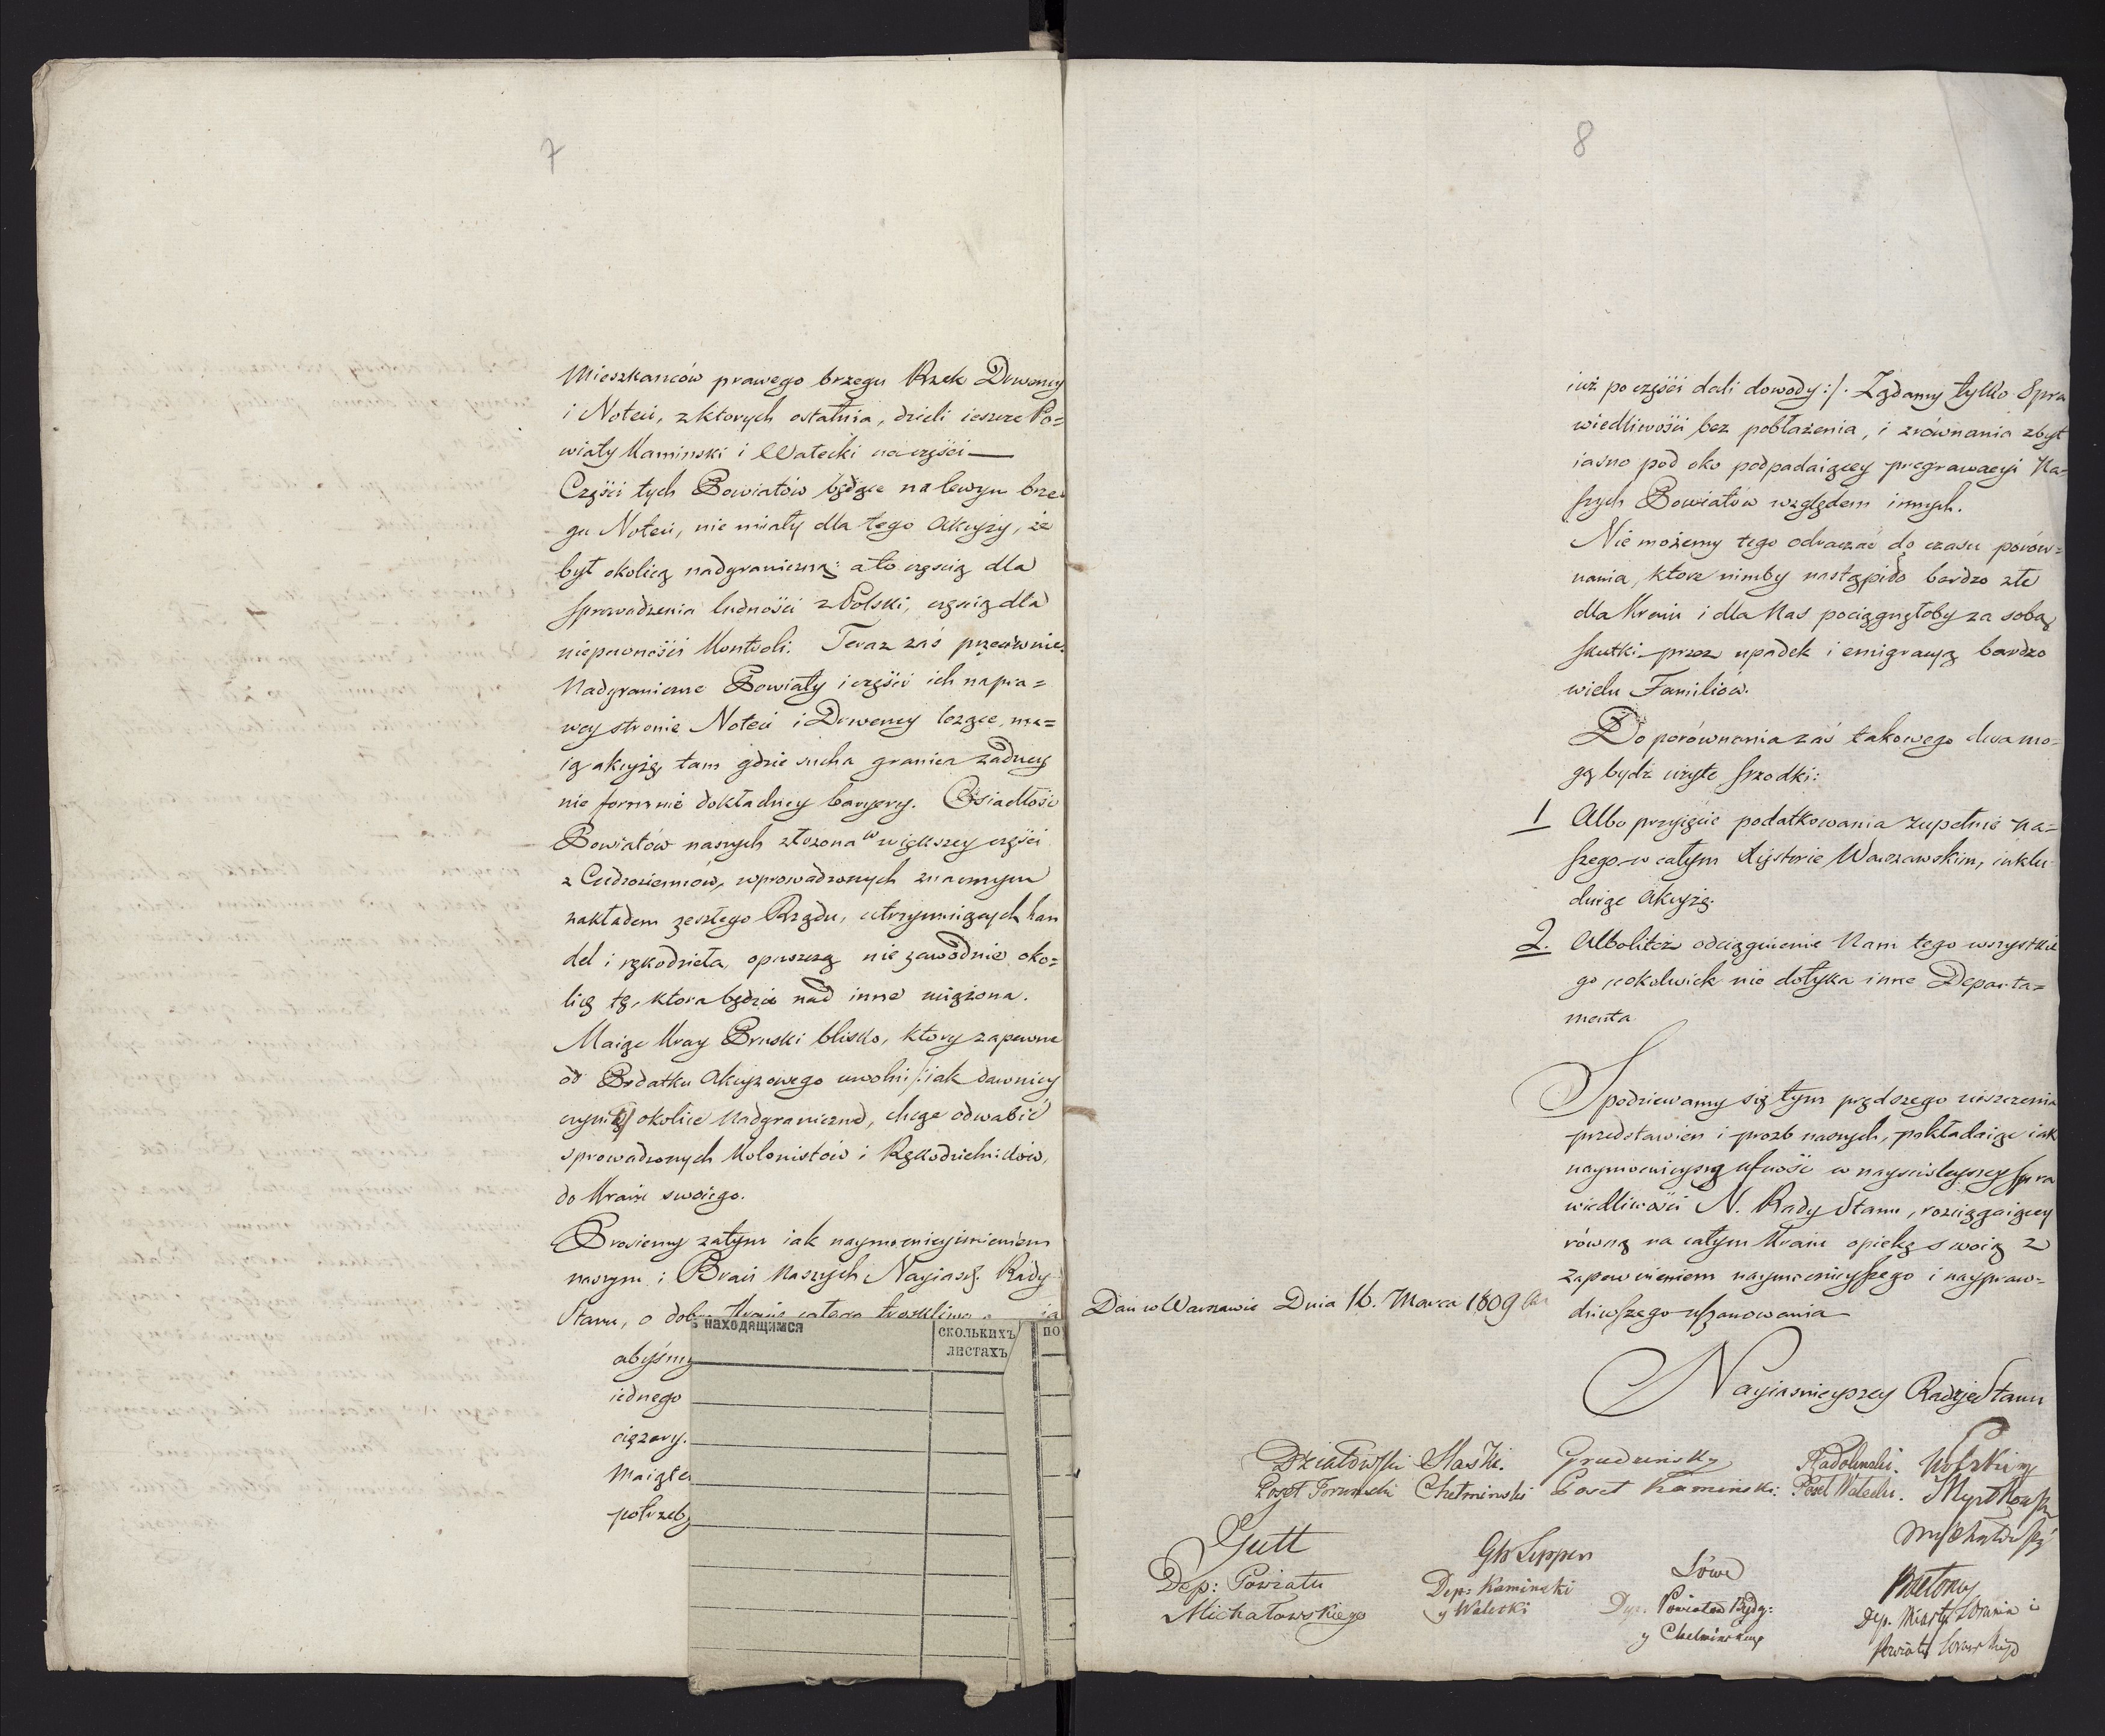 7
Mieszkańców prawego brzegu Rzek Drwency
i Noteci, z ktorych ostatnia, dzieli ieszcze Po=
wiaty Kaminski i Wałecki na części —
Części tych Powiatów będące na lewym brze
gu Noteci, nie miały dla tego Akcyzy, że
był okolicą nadgraniczną: a to częścią dla
sprowadzenia ludności z Polski, częścią dla
niepewności Kontroli. Teraz zaś przeciwnie
Nadgraniczne Powiaty i części ich na pra=
wey stronie Noteci i Drwency leżące, ma=
ią akcyzę, tam gdzie sucha granica żadney
nie formuie dokładney baryery. Osiadłość
Powiatów naszych złożona w większey części
z Cudzoziemców, wprowadzonych znacznym
nakładem zeszłego Rządu, utrzymuiących han
del i rękodzieła, opuszczą nie zawodnie oko=
licę tę, ktora będzie nad inne uciążona.
Maiąc Kray Pruski blisko, ktory zapewne
od Podatku Akcyzowego uwolni /: iak dawniey
czynił :/ okolice Nadgraniczne, chcąc odwabić
sprowadzonych Kolonistów i Rękodzielników,
do Kraiu swoiego.
Prosiemy zatym iak naymocniey imieniem
naszym i Braci Naszych Nayiaś. Rady
Stanu, o dobro Kraiu całego troskliwą
abyśmy
iednego
ciężary.
Maiąte
potrzeb
находящимся
сколькихъ
листахъ
по
8
iuż po części dali dowody :/. Żądamy tylko Spra
wiedliwości bez pobłażenia, i zrównania zbyt
iasno pod oko podpadaiącey pregrawacyi Na=
szych Powiatów względem innych.
Nie możemy tego odwraczać do czasu porów=
nania, ktore nimby nastąpiło bardzo złe
dla Kraiu i dla Nas pociągnęłoby za sobą
skutki przez upadek i emigracyą bardzo
wielu Familiów.
Do porównania zaś takowego dwa mo=
gą bydź użyte srzodki:
1 Albo przyięcie podatkowania zupełnie na=
szego w całym Xięstwie Warszawskim, inklu
duiąc Akcyzę.
2. Albo liteż odciągnienie Nam tego wszystkie
go cokolwiek nie dotyka inne Departa=
menta
Spodziewamy się tym prędszego uiszczenia
przedstawien i prozb naszych, pokładaiąc iak
naymocnieyszą ufność w nayściśleyszey Spra
wiedliwości N. Rady Stanu, rozciągaiącey
równą na całym Kraiu opiekę swoią z
zapewnieniem naymocnieyszego i naypraw=
dziwszego uszanowania
Dan w Warszawie Dnia 16. Marca 1809
Nayiasnieyszey Radzie Stanu
Działowski Slaski. Grudzinsky Radolinski.
Poseł Torunski Chełminski Poseł Kaminski: Poseł Wałecki.
Gutt
Dep: Powiatu
Michałowskiego
Dep: Kaminski
y Wałecki
Löwe
Dep. Powiatów Bydg:
y Chełminskiego
Dep. Miasta Torunia i
Powiatu Torunskiego